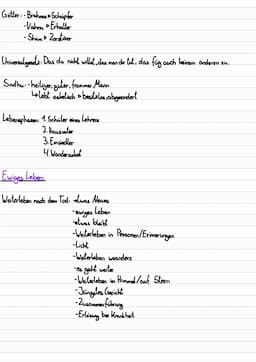 Götter: - Brahma → Schöpfer
- Vishnu → Erhalter
- Shiva → Zerstörer
Universalregel: Das du nicht willst, das man dir tut, das füg auch keinem anderen zu.
Sadhu: - heiliger, guter, frommer Mann
↳ lebt asketisch → besitzlos, abgewendet
Lebensphasen: 1. Schüler eines Lehrers
2. Hausvater
3. Einsiedler
4. Wanderschaft
Ewiges Leben:
Weiterleben nach dem Tod: - etwas Neues
- ewiges Leben
- etwas bleibt
- Weiterleben in Personen/Erinnerungen
- Licht
- Weiterleben woanders
- es geht weiter
- Weiterleben im Himmel/auf Stern
- Jüngstes Gericht
- Zusammenführung
- Erlösung bei Krankheit